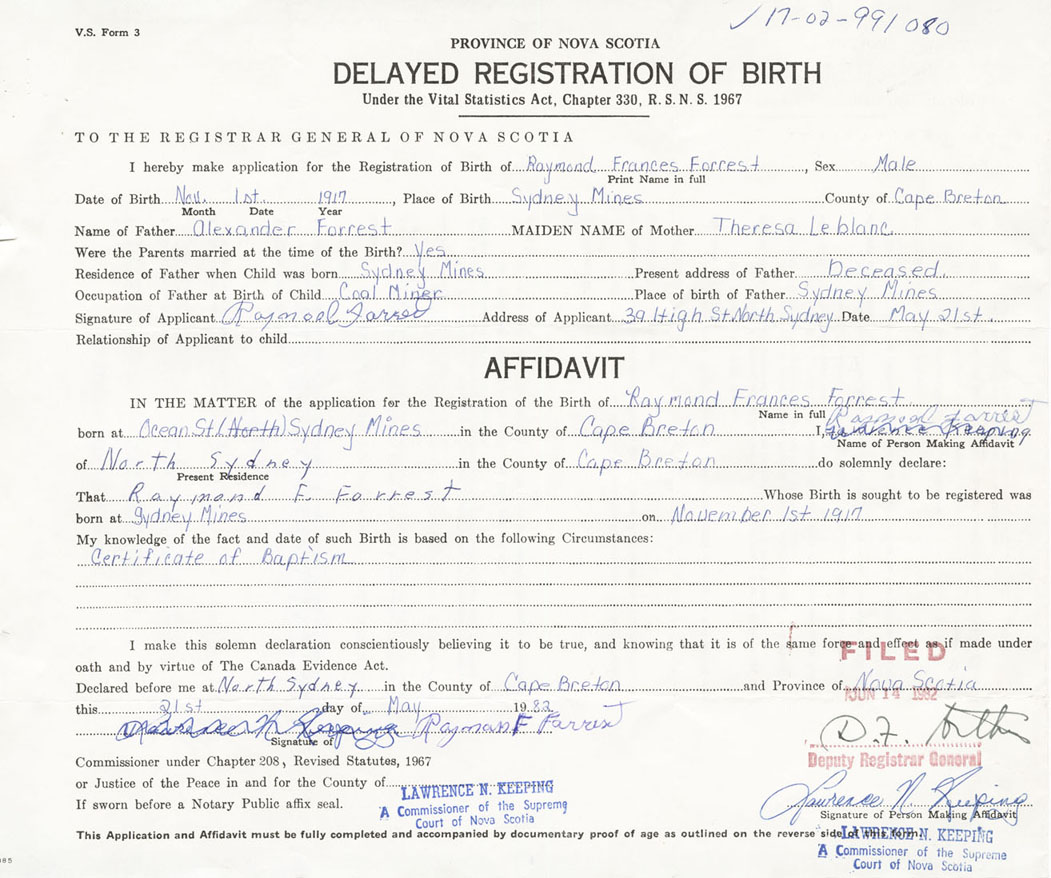 17-02-991080
V.S. Form 3
PROVINCE OF NOVA SCOTIA
DELAYED REGISTRATION OF BIRTH
Under the Vital Statistics Act, Chapter 330, R. S. N. S. 1967
TO THE REGISTRAR GENERAL OF NOVA SCOTIA
I hereby make application for the Registration of Birth of Raymond Frances Forrest, Sex Male
Print Name in full
Date of Birth Nov. 1st. 1917, Place of Birth Sydney Mines County of Cape Breton
Month Date Year
Name of Father Alexander Forrest MAIDEN NAME of Mother Theresa Leblanc
Were the Parents married at the time of the Birth? Yes
Residence of Father when Child was born Sydney Mines Present address of Father Deceased.
Occupation of Father at Birth of Child Coal Miner Place of birth of Father Sydney Mines
Signature of Applicant Address of Applicant 39 High St. North Sydney Date May 21st.
Relationship of Applicant to child
AFFIDAVIT
IN THE MATTER of the application for the Registration of the Birth of Raymond Frances Forrest
Name in full
born at Ocean St (North) Sydney Mines in the County of Cape Breton I,
Name of Person Making Affidavit
of North Sydney in the County of Cape Breton do solemnly declare:
Present Residence
That Raymond F. Forrest Whose Birth is sought to be registered was
born at Sydney Mines on November 1st 1917
My knowledge of the fact and date of such Birth is based on the following Circumstances:
Certificate of Baptism
I make this solemn declaration conscientiously believing it to be true, and knowing that it is of the same force and effect as if made under
FILED
oath and by virtue of The Canada Evidence Act.
Declared before me at North Sydney in the County of Cape Breton and Province of Nova Scotia
JUN 14 1982
this 21st day of May 1982
Signature of
Deputy Registrar General
Commissioner under Chapter 208, Revised Statutes, 1967
or Justice of the Peace in and for the County of
LAWRENCE N. KEEPING
A Commissioner of the Supreme
Court of Nova Scotia
If sworn before a Notary Public affix seal.
Lawrence N. Keeping
Signature of Person Making Affidavit
This Application and Affidavit must be fully completed and accompanied by documentary proof of age as outlined on the reverse side of this form.
LAWRENCE N. KEEPING
A Commissioner of the Supreme
Court of Nova Scotia